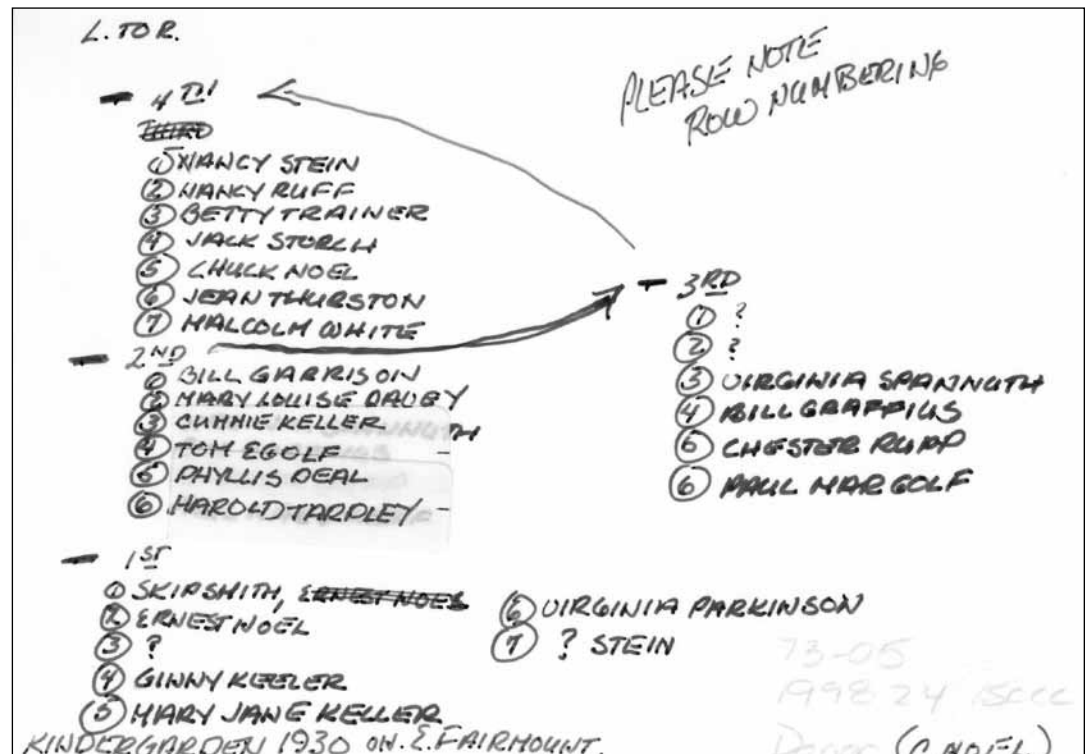 L. TO R.
PLEASE NOTE
ROW NUMBERING
- 4TH
THIRD
① NANCY STEIN
② NANCY RUFF
③ BETTY TRAINER
④ JACK STORCH
⑤ CHUCK NOEL
⑥ JEAN THURSTON
⑦ MALCOLM WHITE
- 2ND
① BILL GARRISON
② MARY LOUISE DAUBY
③ CUMMIE KELLER
④ TOM EGOLF -
⑤ PHYLLIS DEAL
⑥ HAROLD TARDLEY -
- 3RD
① ?
② ?
③ VIRGINIA SPANNUTH
④ BILL GRAFFIUS
⑤ CHESTER RUPP
⑥ PAUL MARGOLF
- 1ST
① SKIP SMITH, ERNEST NOEL
② ERNEST NOEL
③ ?
④ GINNY KEELER
⑤ MARY JANE KELLER
⑥ VIRGINIA PARKINSON
⑦ ? STEIN
KINDERGARDEN 1930 ON. E. FAIRMOUNT.
73-05
1998 24
(C. NOEL)